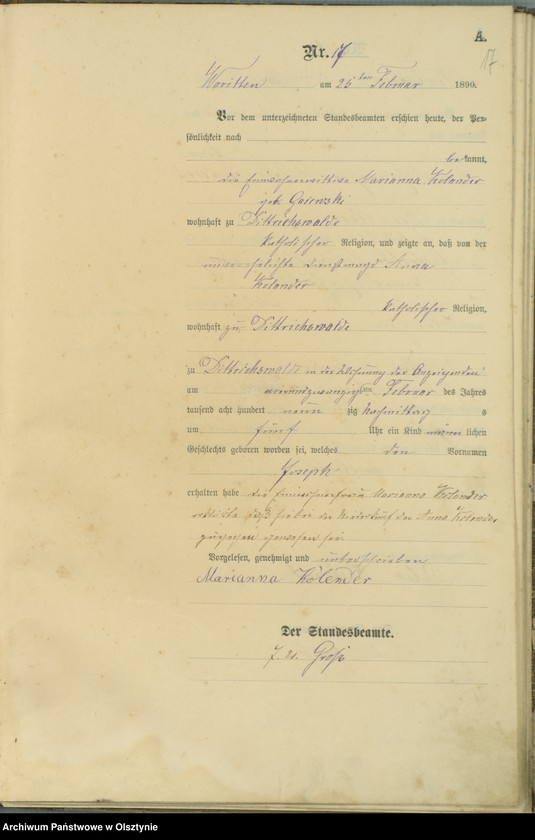 A.
17
Nr. 17
Woritten am 25ten Februar 1890.
Vor dem unterzeichneten Standesbeamten erschien heute, der Per-
sönlichkeit nach
bekannt,
die Einwohnerwittwe Marianna Kolander
geb. Gajewski
wohnhaft zu Dittrichswalde
katholischer Religion, und zeigte an, daß von der
unverehelichte Dienstmagd Anna
Kolander
katholischer Religion,
wohnhaft zu Dittrichswalde
zu Dittrichswalde in der Wohnung der Anzeigenden
am Februar des Jahres
tausend acht hundert neun zig Nachmittag s
um fünf Uhr ein Kind männlichen
Geschlechts geboren worden sei, welches den Vornamen
Joseph
erhalten habe die Einwohnerfrau Marianna Kolander
erklärte daß sie bei der Niederkunft der Anna Kolander
zugegen gewesen sei
Vorgelesen, genehmigt und unterschrieben
Marianna Kölender
Der Standesbeamte.
Archiwum Państwowe w Olsztynie